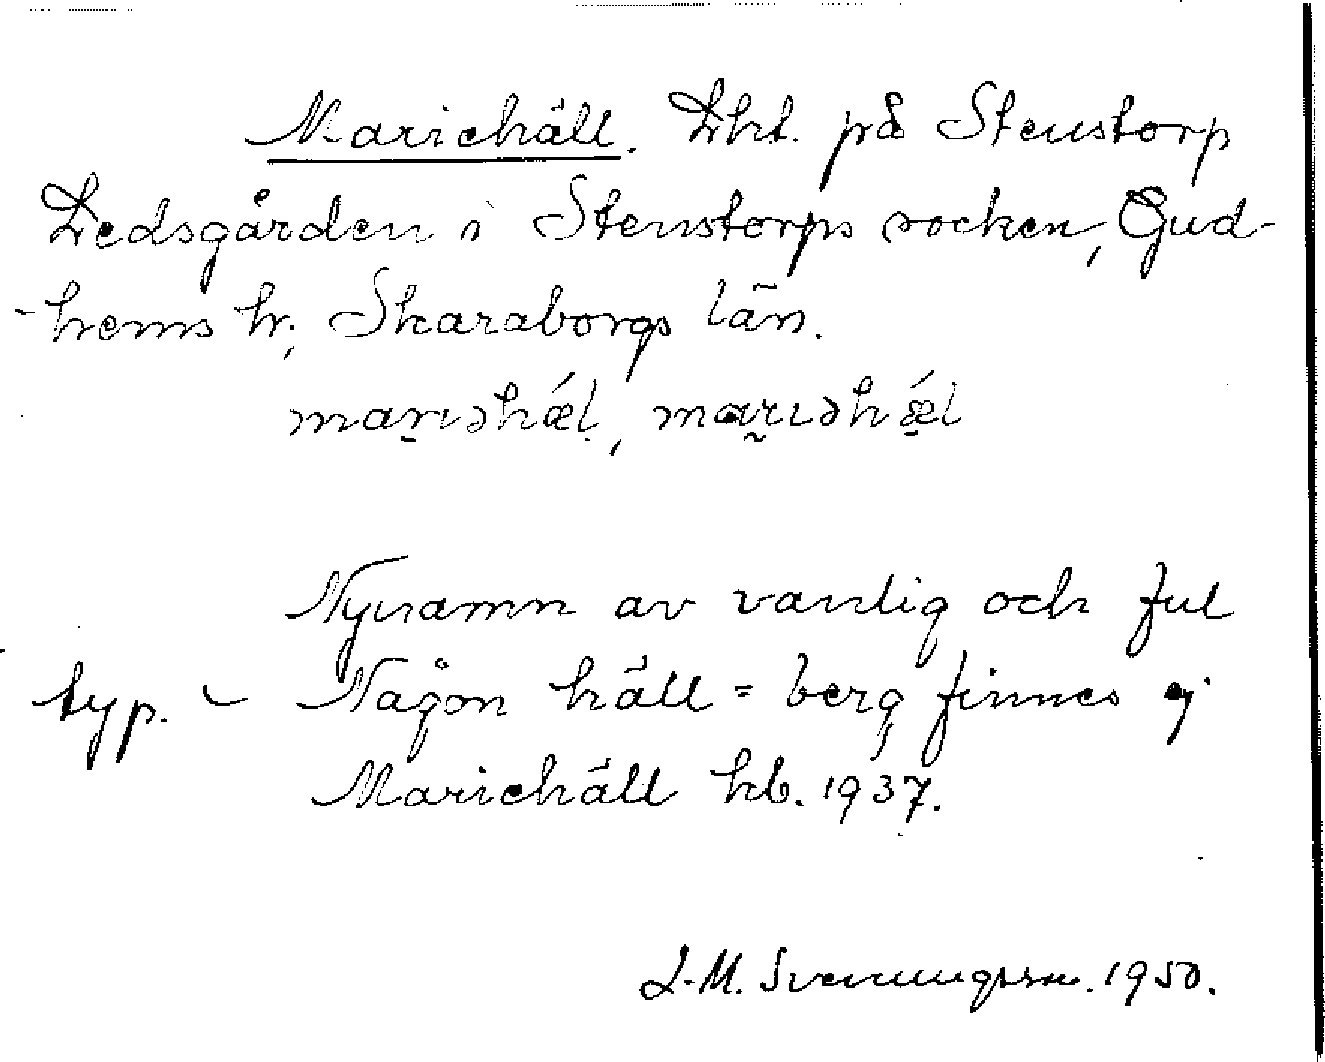 Mariehäll. Lht. på Stenstorp
Ledsgården i Stenstorps socken, Gud-
-hems hr, Skaraborgs län.
marıəhǽl, marıəhǽl
Nynamn av vanlig och ful
typ. – Någon häll = berg finnes ej.
Mariehäll kb. 1937.
J. M. Svenungsson. 1950.